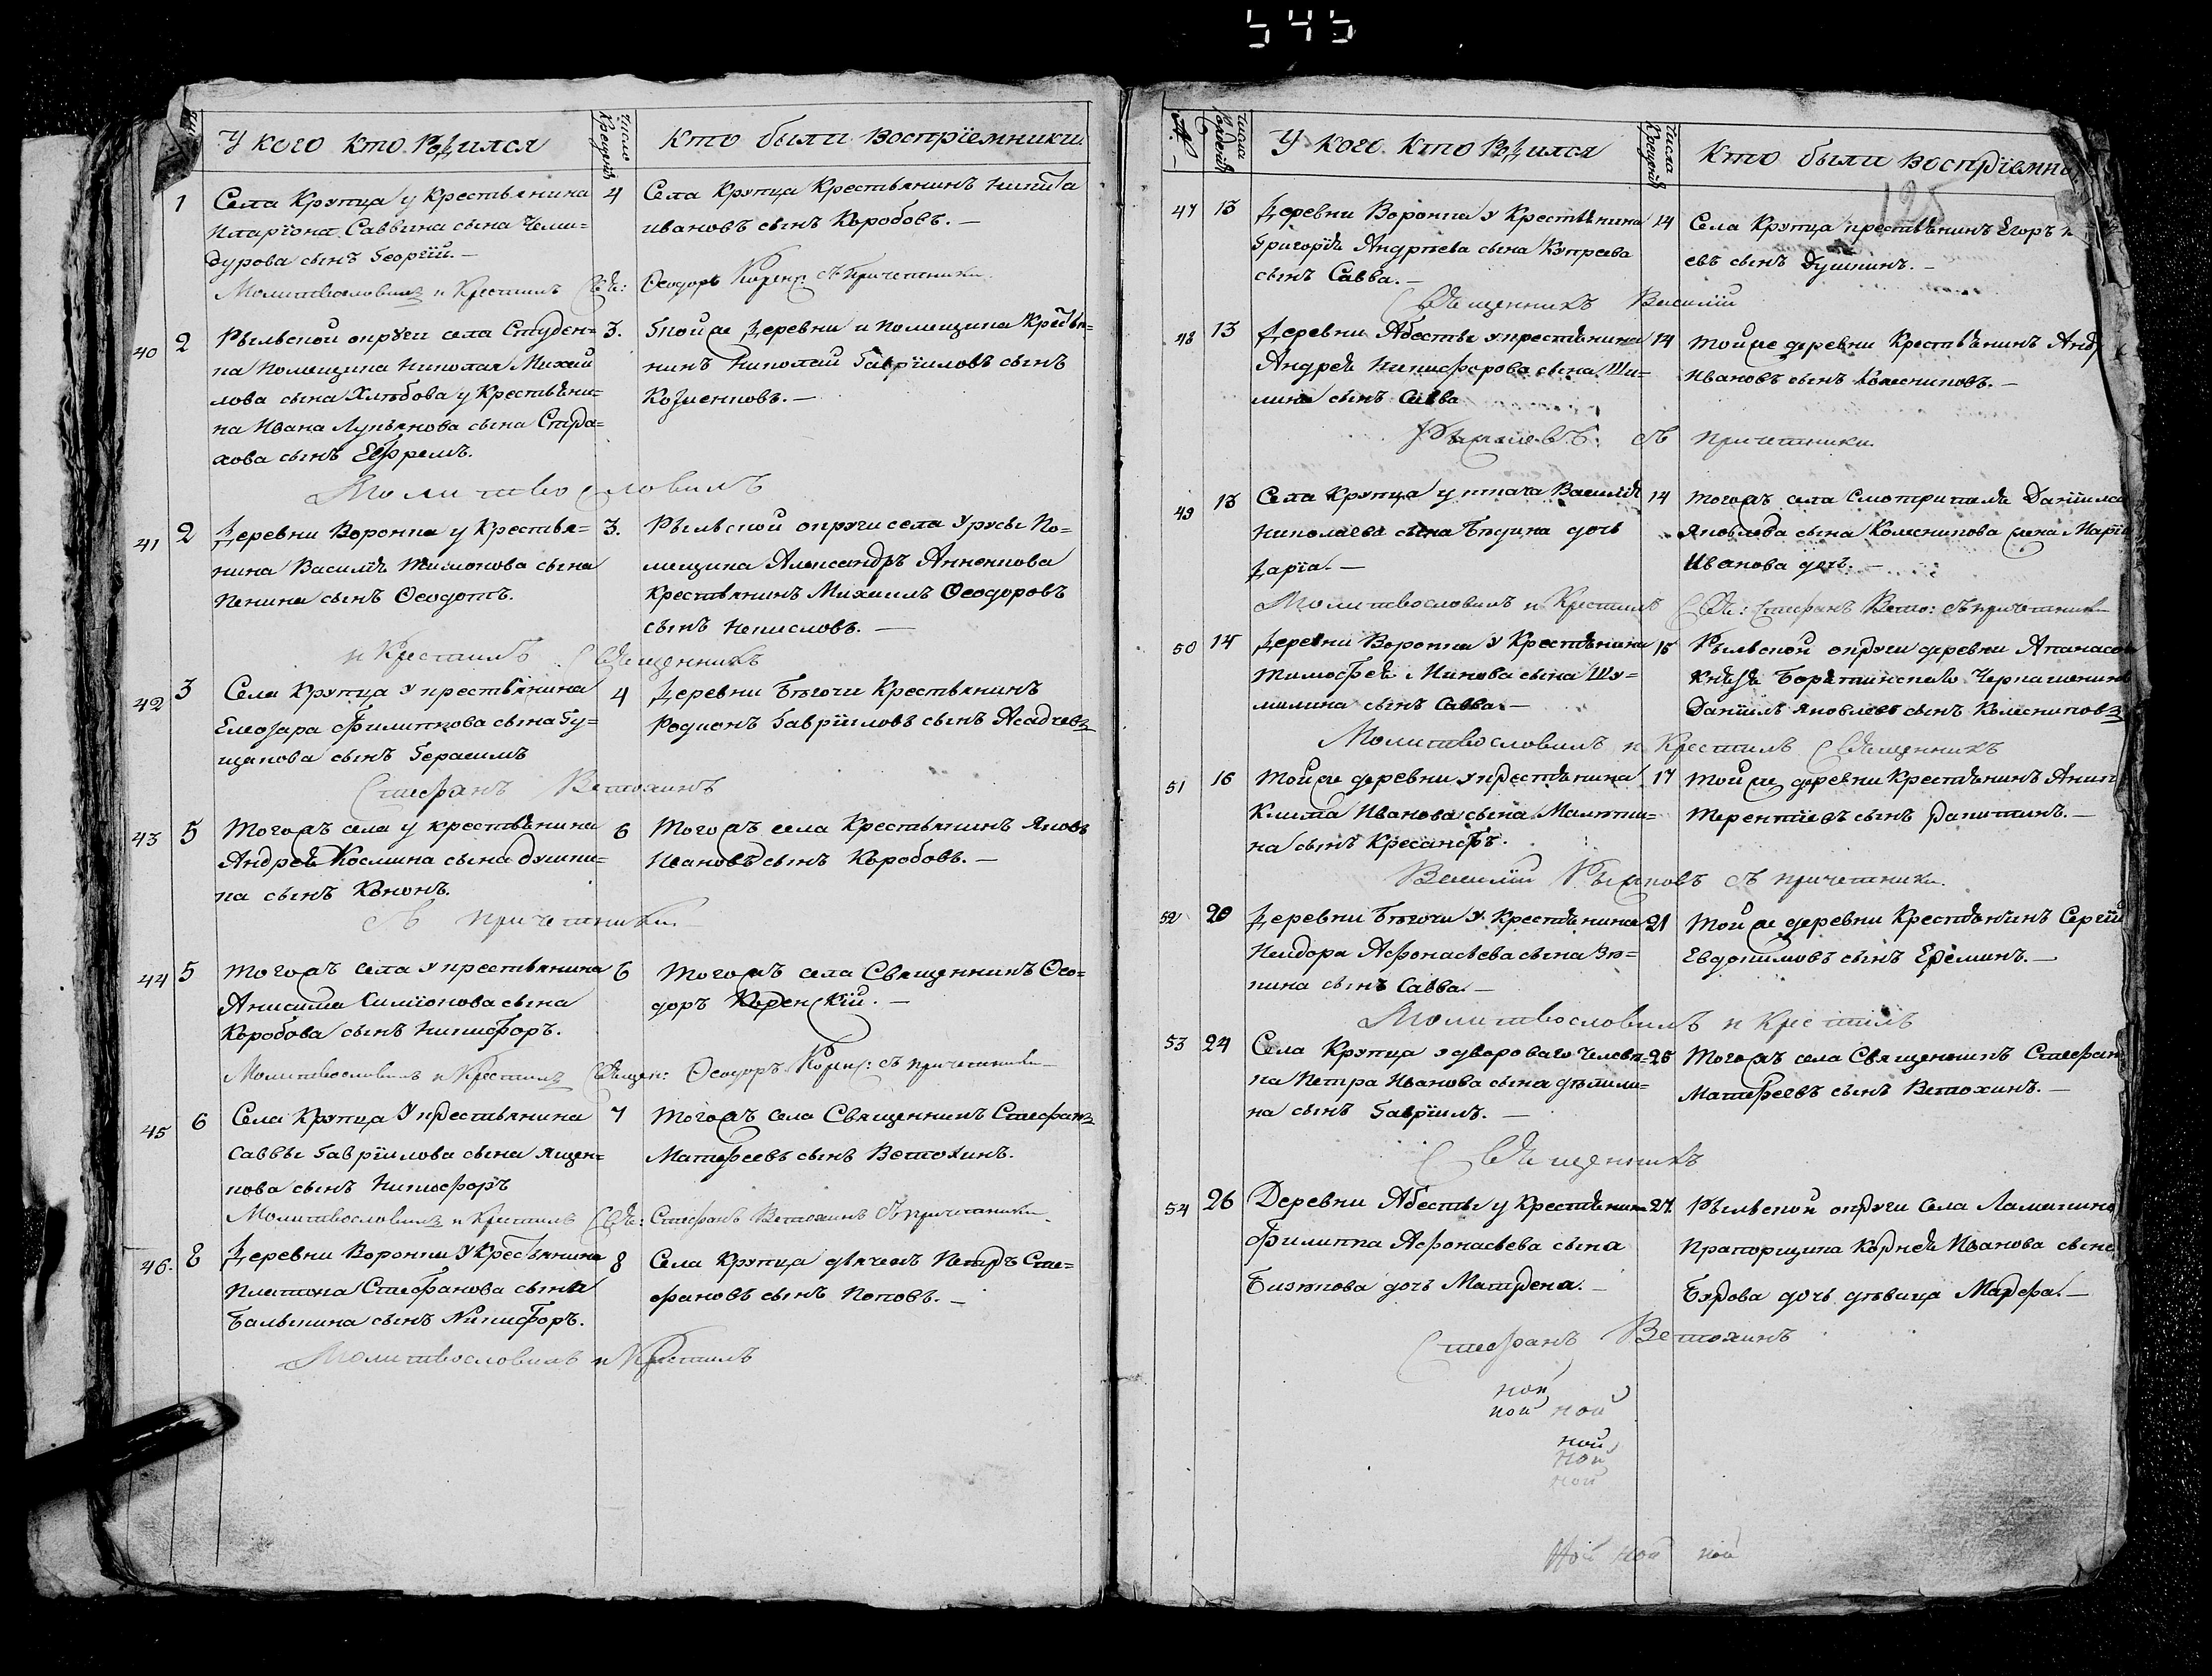 545
У кого кто родился
Число крещенiя
Кто были восприемники
1 Села Крупца у крестьянина
Иларiона Саввина сына Чеми=
дурова сынъ Георгiй. —
4 Села Крупца крестьянинъ Никита
Ивановъ сынъ Коробовъ. —
Молитвословилъ и крестилъ Свя: Ѳеодоръ Корен: съ причетники
40 2 Рыльской округи села Студен=
ка помещика Николая Михаи
лова сына Хлѣбова у крестьяни=
на Ивана Лукьянова сына Стра=
хова сынъ Ефремъ.
3. Тойже деревни и помещика крестья=
нинъ Николай Гаврiиловъ сынъ
Козменковъ. —
Молитвословилъ
41 2 Деревни Воронка у крестья=
нина Василiя Тимонова сына
Пенина сынъ Ѳеодотъ.
3. Рыльской округи села Урусы по=
мещика Александръ Анненкова
крестьянинъ Михаилъ Ѳеодоровъ
сынъ Кекисловъ. —
и крестилъ Священникъ
42 3 Села Крупца у крестьянина
Елеозара Филиппова сына Гу=
щакова сынъ Герасимъ
4 Деревни Бѣгочи крестьянинъ
Родионъ Гаврiиловъ сынъ Асадчевъ
Стефанъ Ветохинъ
43 5 Тогожъ села у крестьянина
Андрея Космина сына Душки=
на сынъ Кононъ.
6 Тогожъ села крестьянинъ Яковъ
Ивановъ сынъ Коробовъ. —
съ причетники
44 5 Тогожъ села у крестьянина
Анисима Симiонова сына
Коробова сынъ Никифоръ.
6 Тогожъ села Священникъ Ѳео=
доръ Коренскiй. —
Молитвословилъ и крестилъ Священ: Ѳеодоръ Корен: съ причетники
45 6 Села Крупца у крестьянина
Саввы Гаврiилова сына Ящен=
кова сынъ Никифоръ
7 Тогожъ села Священникъ Стефанъ
Матфеевъ сынъ Ветохинъ.
Молитвословилъ и крестилъ Свя: Стефанъ Ветохинъ съ причетники
46. 8 Деревни Воронка у крестьянина
Платона Стефанова сына
Балыкина сынъ Никифоръ.
8 Села Крупца дьячекъ Петръ Сте=
фановъ сынъ Поповъ. —
Молитвословилъ и крестилъ
№
Числа рожденiя
У кого кто родился
Числа крещенiя
Кто были восприемни
125
47 13 Деревни Воронка у крестьянина
Григорiя Андреева сына Купреева
сынъ Савва. —
14 Села Крупца крестьянинъ Егоръ
евъ сынъ Душкинъ. —
Священникъ Василiй
48 13 Деревни Абесты у крестьянина
Андрея Никифорова сына Ши=
лина сынъ Савва
14 Тойже деревни крестьянинъ Анд
Ивановъ сынъ Колесниковъ. —
Рыжковъ съ причетники.
49 13 Села Крупца у ткача Василiя
Николаева сына Бѣдина дочь
Дарiа. —
14 Тогожъ села смотрителя Данiила
Яковлева сына Колесникова жена Марiя
Иванова дочь. —
Молитвословилъ и крестилъ Свя: Стефанъ Вето: съ причетники
50 14 Деревни Воронка у крестьянина
Тимофея Минова сына Шу=
милина сынъ Савва. —
15 Рыльской округи деревни Апанасов
Князя Борятинскаго Черкашенинъ
Данiилъ Яковлевъ сынъ Колесниковъ
Молитвословилъ и крестилъ Священникъ
51 16 Тойже деревни у крестьянина
Клима Иванова сына Малюти=
на сынъ Кресанфъ.
17 Тойже деревни крестьянинъ
Терентiевъ сынъ Ракитинъ. —
Василiй Рыжковъ съ причетники.
52 20 Деревни Бѣгочи у крестьянина
Исидора Афонасьева сына Зю=
кина сынъ Савва. —
21 Тойже деревни крестьянинъ Сергiй
Евдокимовъ сынъ Ереминъ. —
Молитвословилъ и крестилъ
53 24 Села Крупца у двороваго челове=
ка Петра Иванова сына
на сынъ Гаврiилъ. —
25 Тогожъ села Священникъ Стефан
Матфеевъ сынъ Ветохинъ. —
Священникъ
54 26 Деревни Абесты у крестьянина
Филиппа Афонасьева сына
дочь Матрена. —
27. Рыльской округи села Ламакина
Прапорщика Корнея Иванова сына
Бурова дочь дѣвица Марфа. —
Стефанъ Ветохинъ
ной
ной ной
ной
ной
ной
ной ной ной